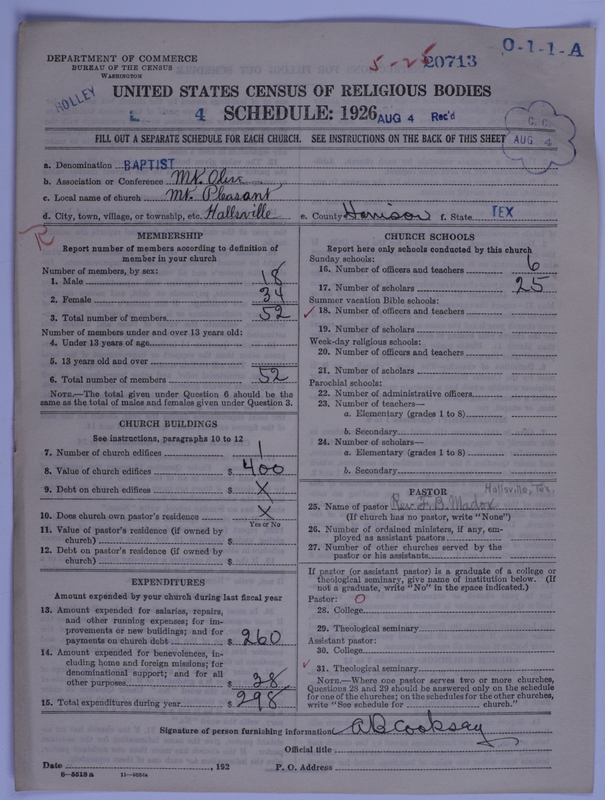 DEPARTMENT OF COMMERCE
BUREAU OF THE CENSUS
WASHINGTON
5-25 20713
O-1-1-A
HOLLEY
UNITED STATES CENSUS OF RELIGIOUS BODIES
L 4 SCHEDULE: 1926 AUG 4 Rec'd
C. C.
AUG 4
FILL OUT A SEPARATE SCHEDULE FOR EACH CHURCH. SEE INSTRUCTIONS ON THE BACK OF THIS SHEET
a. Denomination BAPTIST
b. Association or Conference Mt. Olive
c. Local name of church Mt. Pleasant
d. City, town, village, or township, etc. Hallsville e. County Harrison f. State TEX
R
MEMBERSHIP
Report number of members according to definition of
member in your church
Number of members, by sex:
1. Male 18
2. Female 34
3. Total number of members 52
Number of members under and over 13 years old:
4. Under 13 years of age
5. 13 years old and over
6. Total number of members 52
NOTE.—The total given under Question 6 should be the
same as the total of males and females given under Question 3.
CHURCH BUILDINGS
See instructions, paragraphs 10 to 12
7. Number of church edifices 1
8. Value of church edifices $ 400
9. Debt on church edifices $ X
10. Does church own pastor's residence X
Yes or No
11. Value of pastor's residence (if owned by
church) $
12. Debt on pastor's residence (if owned by
church) $
EXPENDITURES
Amount expended by your church during last fiscal year
13. Amount expended for salaries, repairs,
and other running expenses; for im-
provements or new buildings; and for
payments on church debt $ 260
14. Amount expended for benevolences, in-
cluding home and foreign missions; for
denominational support; and for all
other purposes $ 38
15. Total expenditures during year $ 298
CHURCH SCHOOLS
Report here only schools conducted by this church
Sunday schools:
16. Number of officers and teachers 6
17. Number of scholars 25
Summer vacation Bible schools:
18. Number of officers and teachers
19. Number of scholars
Week-day religious schools:
20. Number of officers and teachers
21. Number of scholars
Parochial schools:
22. Number of administrative officers
23. Number of teachers—
a. Elementary (grades 1 to 8)
b. Secondary
24. Number of scholars—
a. Elementary (grades 1 to 8)
b. Secondary
PASTOR Hallsville, Tex.
25. Name of pastor Rev. F. B. Madox
(If church has no pastor, write "None")
26. Number of ordained ministers, if any, em-
ployed as assistant pastors
27. Number of other churches served by the
pastor or his assistants
If pastor (or assistant pastor) is a graduate of a college or
theological seminary, give name of institution below. (If
not a graduate, write "No" in the space indicated.)
Pastor: O
28. College
29. Theological seminary
Assistant pastor:
30. College
31. Theological seminary
NOTE.—Where one pastor serves two or more churches,
Questions 28 and 29 should be answered only on the schedule
for one of the churches; on the schedules for the other churches,
write "See schedule for church."
Signature of person furnishing information A B Cooksey
Official title
Date , 192 P. O. Address
8—5518a